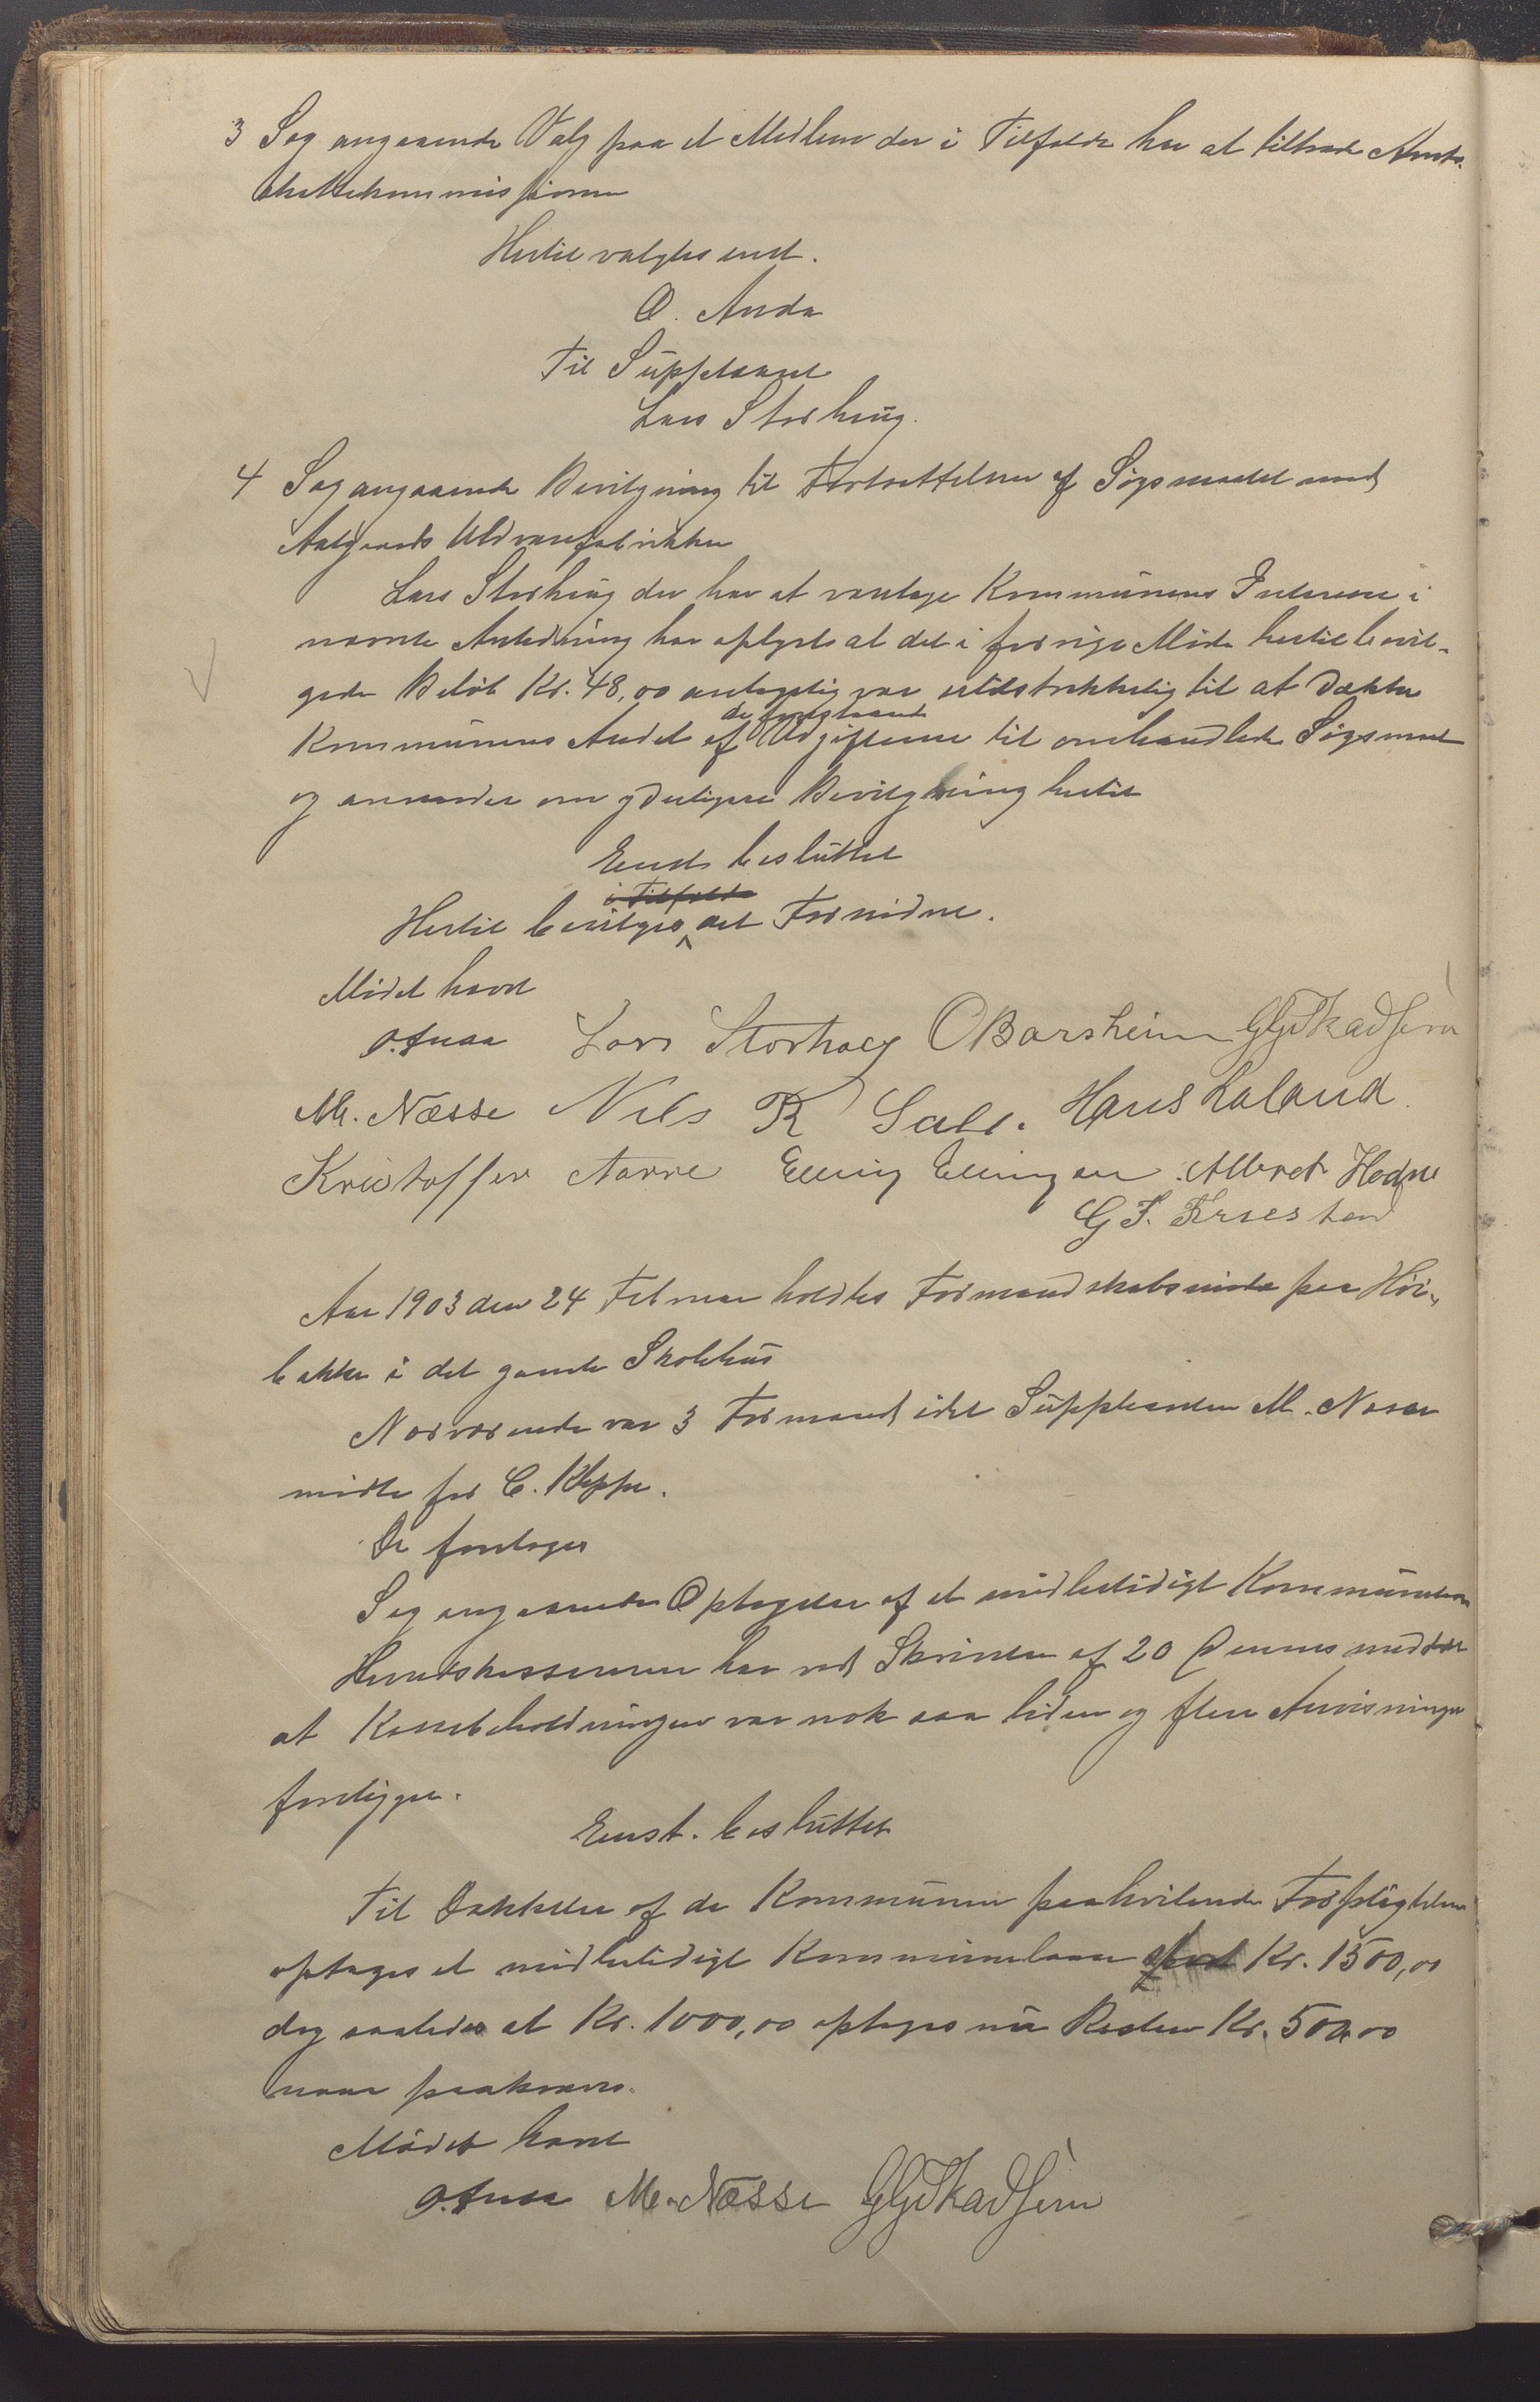 3 Sag angaaende Valg paa et Medlem der i Tilfælde har at tiltræde Amts-
skattekommissionen
Hertil valgtes enst.
O. Anda
Til Suppleant
Lars Storhaug.
4 Sag angaaende Bevilgning til Fortsættelsen af Søgsmaalet mod
Aalgaards Uldvarefabrikker
Lars Storhaug der har at varetage Kommunens Interesse i
nævnte Anledning har oplyst at det i forrige Møde hertil bevil-
gede Beløb Kr. 48,00 antagelig var utilstrekkelig til at dække
de forestaaende
Kommunens Andel af Udgifterne til omhandlede Søgsmaal
og anmoder om yderligere Bevilgning hertil
Enst. besluttet
i Tilfælde
Hertil bevilges det Fornødne.
Mødet hævet
O. Anda Lars Storhaug O Borsheim GGSkadsem
M. Næsse Nils R Sele. Hans Laland
Kristoffer Aarre Elling Ellingsen Albret Hodne
G F. Friestad
Aar 1903 den 24 Februar holdtes Formandskabsmøde paa Høi-
bakke i det gamle Skolehus
Nærværende var 3 Formænd idet Suppleanten M. Næsse
mødte for C. Kleppe.
Da foretoges
Sag angaaende Optagelse af et midlertidigt Kommunelaan
Herredskassereren har ved Skrivelse af 20 dennes meddelt
at Kassebeholdningen var nok saa liden og flere Anvisninger
foreligger.
Enst. besluttet
Til Dækkelse af de Kommunen paahvilende Forpligtelser
optages et midlertidigt Kommunelaan Kr. 1500,00
dog saaledes at Kr. 1000,00 optages nu Resten Kr. 500,00
naar paakræves.
Mødet hævet
O. Anda M. Næsse GGSkadsem